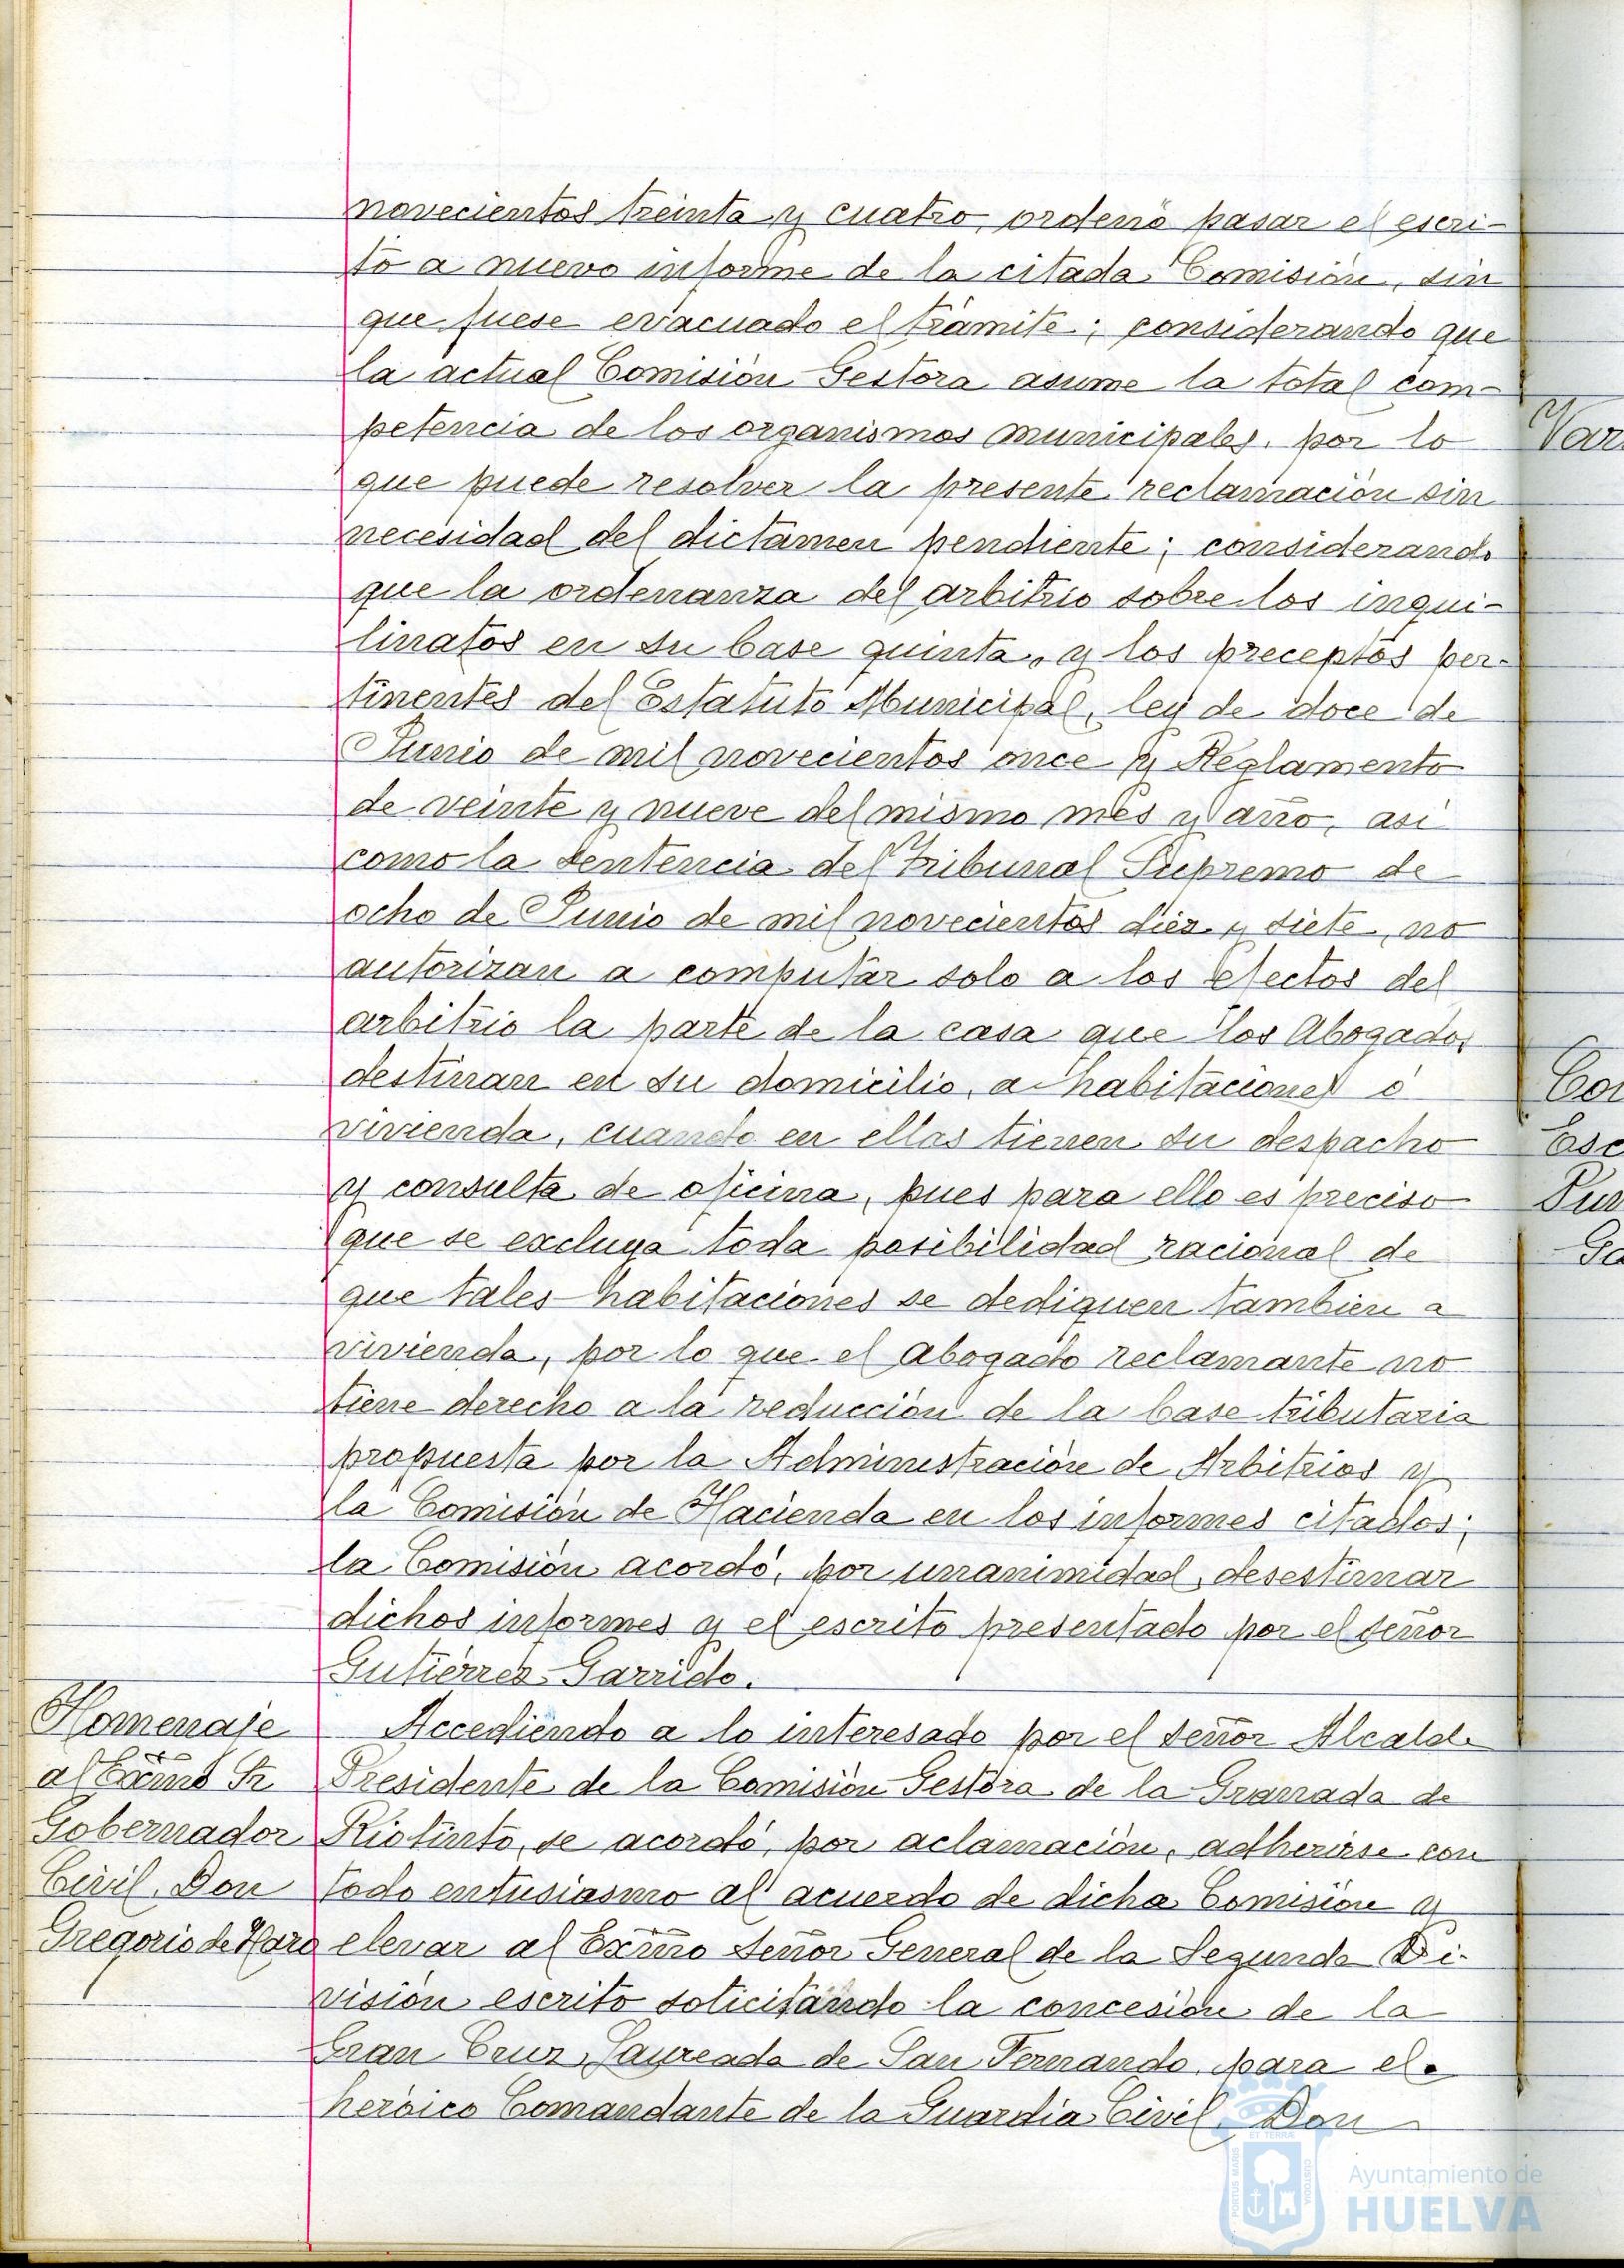 novecientos treinta y cuatro, ordenó pasar el escri-
to a nuevo informe de la citada Comisión, sin
que fuese evacuado el trámite; considerando que
la actual Comisión Gestora asume la total com-
petencia de los organismos municipales, por lo
que puede resolver la presente reclamación sin
necesidad del dictámen pendiente; considerando
que la ordenanza del arbitrio sobre los inqui-
linatos en su base quinta, y los preceptos per-
tinentes del Estatuto Municipal, ley de doce de
Junio de mil novecientos once y Reglamento
de veinte y nueve del mismo mes y año, así
como la sentencia del Tribunal Supremo de
ocho de Junio de mil novecientos diez y siete, no
autorizan a computar solo a los efectos del
arbitrio la parte de la casa que los Abogados
destinan en su domicilio, a habitaciones ó
vivienda, cuando en ellas tienen su despacho
y consulta de oficina, pues para ello es preciso
que se excluya toda posibilidad racional de
que tales habitaciones se dediquen tambien a
vivienda, por lo que el abogado reclamante no
tiene derecho a la reducción de la base tributaria
propuesta por la Administración de Arbitrios y
la Comisión de Hacienda en los informes citados;
la Comisión acordó, por unanimidad, desestimar
dichos informes y el escrito presentado por el señor
Gutiérrez Garrido.
Homenaje
al Excmo Sr
Gobernador
Civil, Don
Gregorio de Haro
Accediendo a lo interesado por el señor Alcalde
Presidente de la Comisión Gestora de la Granada de
Riotinto, se acordó, por aclamación, adherirse con
todo entusiasmo al acuerdo de dicha Comisión y
elevar al Excmo señor General de la Segunda Di-
visión escrito solicitando la concesión de la
Gran Cruz Laureada de San Fernando, para el
heróico Comandante de la Guardia Civil, Don
Var
Con
Esc
Ga
PORTUS MARIS
ET TERRÆ
CUSTODIA
Ayuntamiento de
HUELVA